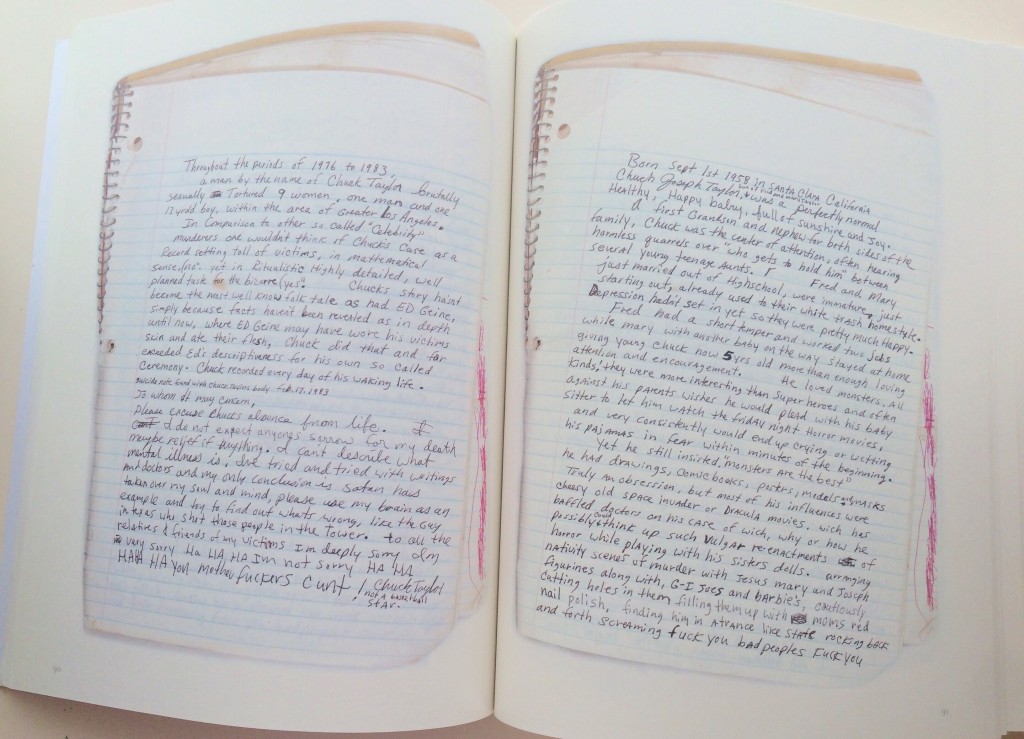 Throughout the periods of 1976 to 1983,
a man by the name of Chuck Taylor brutally
sexually Tortured 9 women, one man and one
13 yr old boy, within the area of Greater Los Angeles.
In Comparison to other so called "Celebrity"
murderers one wouldn't think of Chucks Case as a
Record setting toll of victims, in mathematical
sense, (no". yet in Ritualistic Highly detailed, well
planned task for the bizarre (yes". Chucks story hasnt
become the most well know folk tale as had ED Geine,
simply because facts haven't been reveled as in depth
until now, where ED Geine may have wore his victims
skin and ate their flesh, Chuck did that and far
exceeded Ed's descriptiveness for his own so called
Ceremony. Chuck recorded every day of his waking life.
suicide note found with chuck taylors body. Feb.17.1983
To whom it may concern,
please excuse Chucks absence from life.
I do not expect anyones sorrow for my death
maybe relief if anything. I cant describe what
mental illness is, Ive tried and tried with writings
and doctors and my only conclusion is Satan has
taken over my soul and mind, please use my brain as an
example and try to find out whats wrong, like the Guy
in texas who shot those people in the Tower. to all the
relatives & friends of my victims I'm deeply sorry Im
very sorry Ha HA, HA Im not sorry HA HA
HAHA HA You Mother fuckers Cunt! Chuck Taylor
not a basketball
STAR.
90
Born Sept 1st 1958, in Santa Clara California
Chuck Joseph Taylor, was a perfectly normal
Healthy, Happy baby, full of sunshine and Joy.
A first Grandson and nephew for both sides of the
family, Chuck was the center of attention, often hearing
harmless quarrels over "who gets to hold him" between
several young teenage Aunts. Fred and Mary,
just married out of Highschool, were immature, just
starting out, already used to their white trash homestyle.
Depression hadn't set in yet so they were pretty much happy.
Fred had a short temper and worked two jobs
while mary with another baby on the way stayed at home
giving young Chuck now 5 yrs old more than enough loving
attention and encouragement. He loved monsters. All
Kinds! they were more interesting than Super heroes and often
against his parents wishes he would plead with his baby
sitter to let him watch the friday night Horror movies,
and very consistently would end up crying or wetting
his pajamas in fear within minutes of the beginning.
Yet he still insisted, "monsters Are the best"
he had drawings, Comic books, posters, models & masks
Truly An obsession, but most of his influences were
cheesy old space invader or Dracula movies. wich has
baffled doctors on his case of wich, why or how he
possibly could think up such Vulgar re-enactments of
horror while playing with his sisters dolls. arrnging
Nativity scenes of murder with Jesus mary and Joseph
figurines along with, G-I Joes and barbie's, cautiously
Cutting holes in them filling them up with moms red
nail polish, finding him in Atrance like State rocking back
and forth screaming fuck you bad peoples Fuck you
91